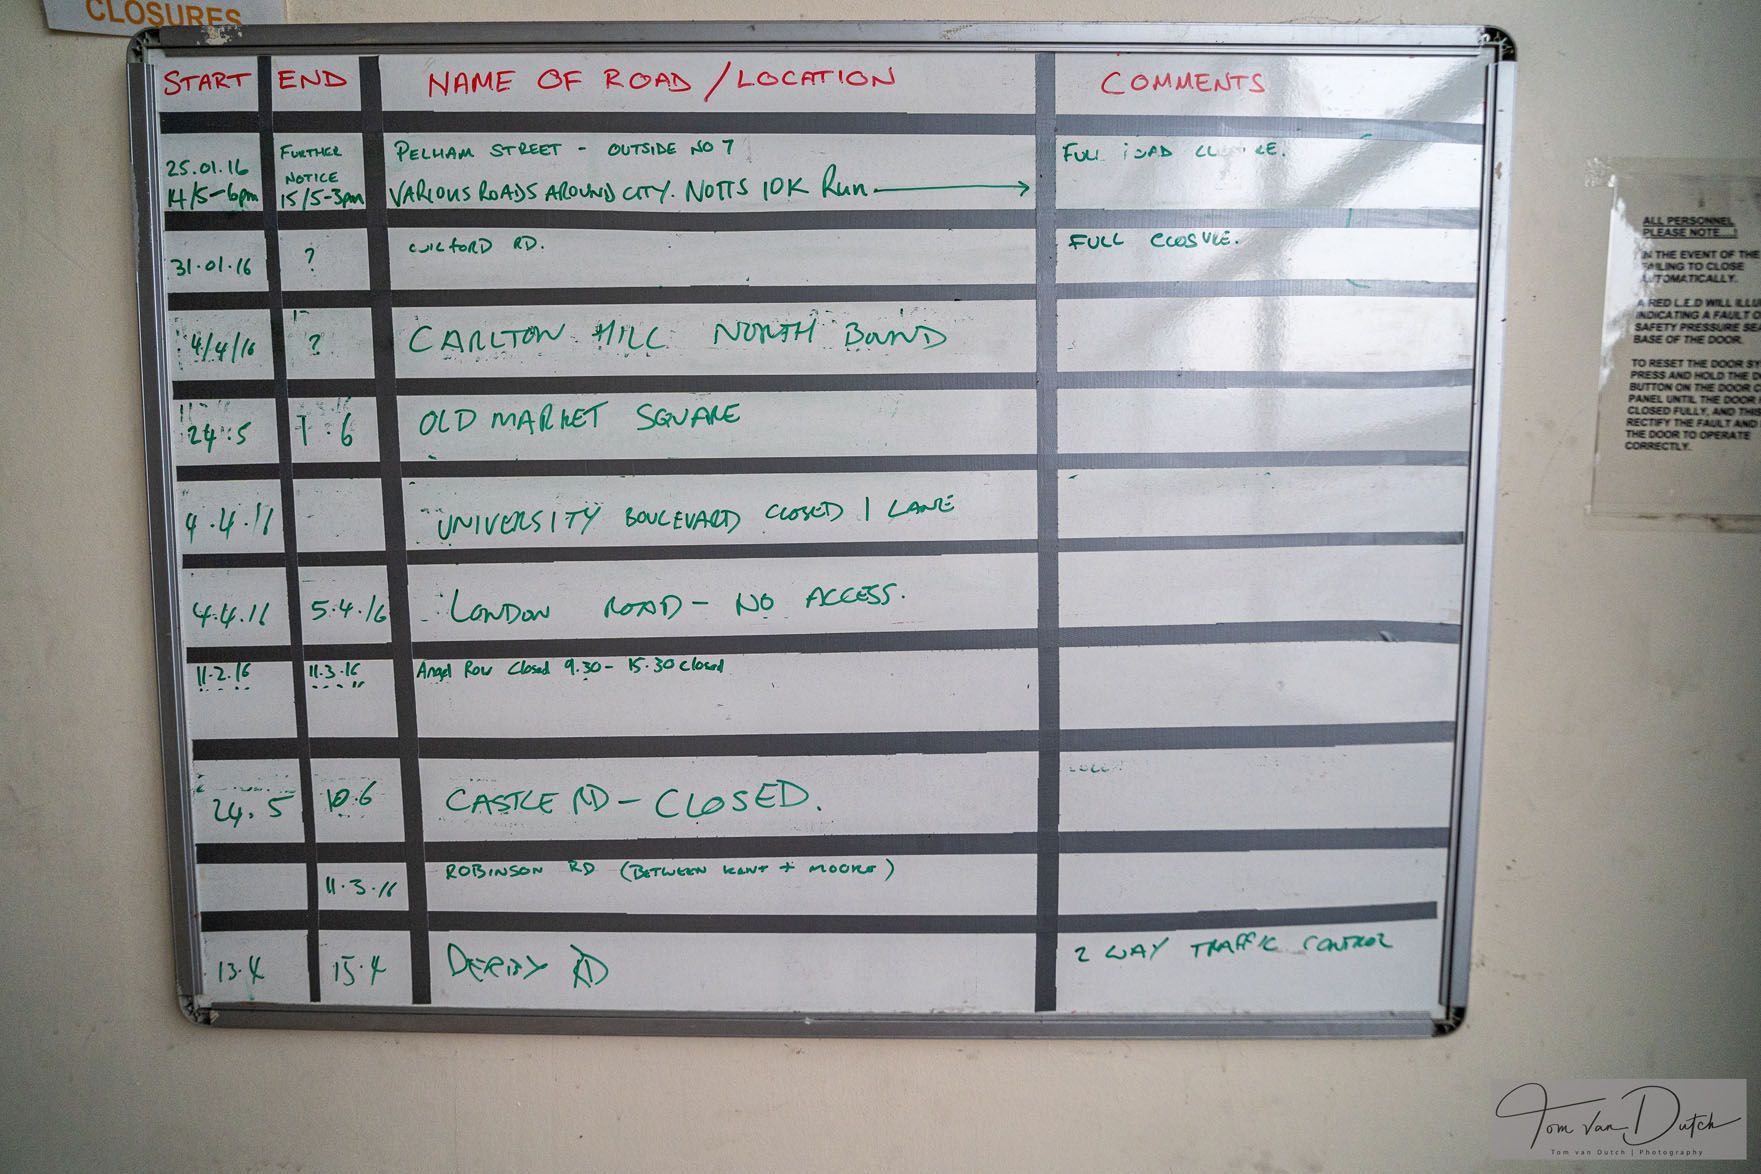 CLOSURES
START END NAME OF ROAD / LOCATION COMMENTS
25.01.16 FURTHER NOTICE PELHAM STREET - OUTSIDE NO 7 FULL ROAD
14/5-6pm 15/5-3pm VARIOUS ROADS AROUND CITY. NOTTS 10K Run
31.01.16 ? RD. FULL CLOSURE.
4/4/16 ? CARLTON HILL NORTH BOUND
24.5 1.6 OLD MARKET SQUARE
4.4.11 UNIVERSITY BOULEVARD CLOSED 1 LANE
4.4.16 5.4.16 LONDON ROAD - NO ACCESS.
11.2.16 11.3.16 Angel Row Closed 9.30 - 15.30 closed
24.5 10.6 CASTLE RD - CLOSED.
11.3.16 ROBINSON RD (BETWEEN KENT + MOORE)
13.4 15.4 DERBY RD 2 WAY TRAFFIC CONTROL
ALL PERSONNEL
PLEASE NOTE
IN THE EVENT OF THE
TO CLOSE
AUTOMATICALLY.
A RED L.E.D WILL
INDICATING A FAULT
SAFETY PRESSURE
BASE OF THE DOOR.
TO RESET THE DOOR
PRESS AND HOLD THE
BUTTON ON THE DOOR
PANEL UNTIL THE DOOR
CLOSED FULLY, AND
RECTIFY THE FAULT AND
THE DOOR TO OPERATE
CORRECTLY.
Tom van Dutch
Tom van Dutch | Photography